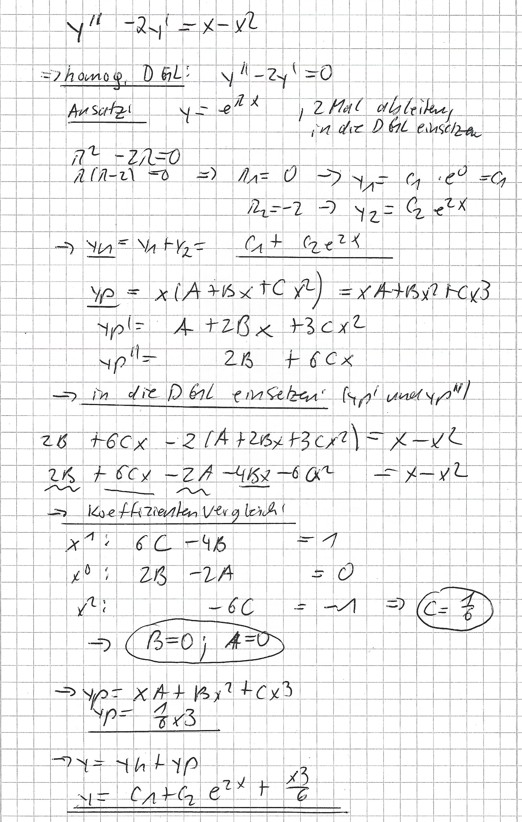 y'' -2y' = x-x²
=> homog. DGL: y''-2y' = 0
Ansatz: y = e^λx , 2 Mal ableiten,
in die DGL einsetzen
λ² -2λ=0
λ(λ-2) =0 => λ1= 0 → y1= C1 ·e^0 =C1
λ2=-2 → y2= C2 e^2x
→ yh = y1+y2= C1 + C2 e^2x
yp = x(A+Bx+Cx²) = xA+Bx²+Cx3
yp'= A +2Bx +3Cx²
yp''= 2B + 6Cx
→ in die DGL einsetzen: (yp' und yp'')
2B +6Cx -2(A+2Bx+3Cx²) = x-x²
2B + 6Cx -2A -4Bx -6Cx² = x-x²
→ Koeffizientenvergleich:
x¹: 6C -4B = 1
x⁰: 2B -2A = 0
x²: -6C = -1 => C= 1/6
→ B=0; A=0
→ yp= xA+Bx²+Cx3
yp= 1/6 x3
→ y= yh+yp
y= C1+C2 e^2x + x3/6